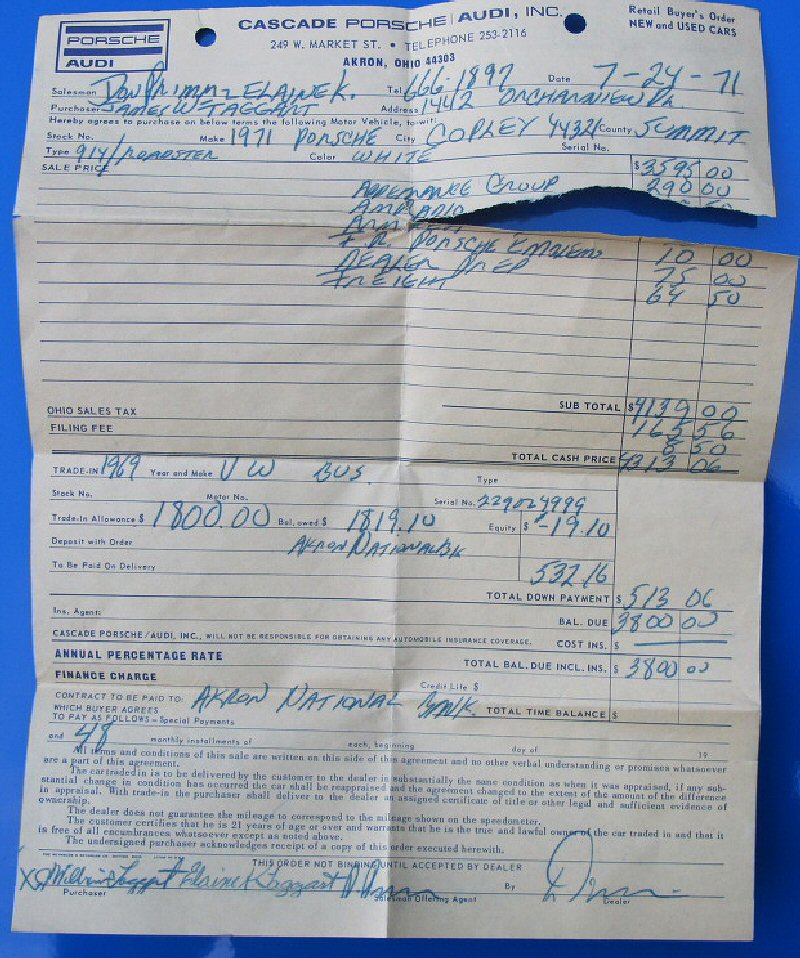 PORSCHE
AUDI
CASCADE PORSCHE/AUDI, INC.
249 W. MARKET ST. • TELEPHONE 253-2116
AKRON, OHIO 44303
Retail Buyer's Order
NEW and USED CARS
Salesman Don ELAINE K. Tel 666-1897 Date 7-24-71
Purchaser JAMES W TAGGART Address 1442 ORCHARDVIEW DR
Hereby agrees to purchase on below terms the following Motor Vehicle, to-wit:
Stock No. Make 1971 PORSCHE City COPLEY 44321 County SUMMIT
Type 914/ROADSTER Color WHITE Serial No.
SALE PRICE $3595 00
APPEARANCE GROUP 290 00
AM RADIO
PORSCHE EMBLEM 10 00
DEALER PREP 75 00
FREIGHT 64 50
SUB TOTAL $4139 00
OHIO SALES TAX 165 56
FILING FEE 8 50
TOTAL CASH PRICE 4313 06
TRADE-IN 1969 Year and Make VW BUS. Type
Stock No. Motor No. Serial No. 229024999
Trade-in Allowance $ 1800.00 Bal. owed $ 1819.10 Equity $ -19.10
Deposit with Order AKRON NATIONAL BK
To Be Paid On Delivery 532 16
TOTAL DOWN PAYMENT $ 513 06
Ins. Agent: BAL. DUE 3800 00
CASCADE PORSCHE/AUDI, INC., WILL NOT BE RESPONSIBLE FOR OBTAINING ANY AUTOMOBILE INSURANCE COVERAGE. COST INS. $
ANNUAL PERCENTAGE RATE TOTAL BAL. DUE INCL. INS. $ 3800 00
FINANCE CHARGE Credit Life $
CONTRACT TO BE PAID TO: AKRON NATIONAL BANK.
WHICH BUYER AGREES TOTAL TIME BALANCE $
TO PAY AS FOLLOWS - Special Payments
and 48 monthly instalments of each, beginning day of 19
All terms and conditions of this sale are written on this side of this agreement and no other verbal understanding or promises whatsoever
are a part of this agreement.
The car traded in is to be delivered by the customer to the dealer in substantially the same condition as when it was appraised, if any sub-
stantial change in condition has occurred the car shall be reappraised and the agreement changed to the extent of the amount of the difference
in appraisal. With trade-in the purchaser shall deliver to the dealer an assigned certificate of title or other legal and sufficient evidence of
ownership.
The dealer does not guarantee the mileage to correspond to the mileage shown on the speedometer.
The customer certifies that he is 21 years of age or over and warrants that he is the true and lawful owner of the car traded in and that it
is free of all encumbrances whatsoever except as noted above.
The undersigned purchaser acknowledges receipt of a copy of this order executed herewith.
THIS ORDER NOT BINDING UNTIL ACCEPTED BY DEALER
X Elaine K Taggart By
Purchaser Salesman Offering Agent Dealer